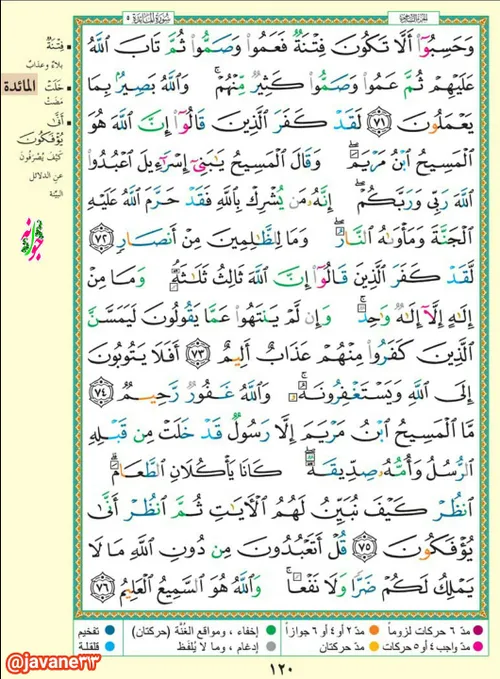 الجزء السادس
سورة المائدة ٥
وَحَسِبُوٓا۟ أَلَّا تَكُونَ فِتْنَةٌ فَعَمُوا۟ وَصَمُّوا۟ ثُمَّ تَابَ ٱللَّهُ
عَلَيْهِمْ ثُمَّ عَمُوا۟ وَصَمُّوا۟ كَثِيرٌ مِّنْهُمْ ۚ وَٱللَّهُ بَصِيرٌۢ بِمَا
يَعْمَلُونَ ٧١ لَقَدْ كَفَرَ ٱلَّذِينَ قَالُوٓا۟ إِنَّ ٱللَّهَ هُوَ
ٱلْمَسِيحُ ٱبْنُ مَرْيَمَ ۖ وَقَالَ ٱلْمَسِيحُ يَـٰبَنِىٓ إِسْرَٰٓءِيلَ ٱعْبُدُوا۟
ٱللَّهَ رَبِّى وَرَبَّكُمْ ۖ إِنَّهُۥ مَن يُشْرِكْ بِٱللَّهِ فَقَدْ حَرَّمَ ٱللَّهُ عَلَيْهِ
ٱلْجَنَّةَ وَمَأْوَىٰهُ ٱلنَّارُ ۖ وَمَا لِلظَّـٰلِمِينَ مِنْ أَنصَارٍ ٧٢
لَّقَدْ كَفَرَ ٱلَّذِينَ قَالُوٓا۟ إِنَّ ٱللَّهَ ثَالِثُ ثَلَـٰثَةٍ ۘ وَمَا مِنْ
إِلَـٰهٍ إِلَّآ إِلَـٰهٌ وَٰحِدٌ ۚ وَإِن لَّمْ يَنتَهُوا۟ عَمَّا يَقُولُونَ لَيَمَسَّنَّ
ٱلَّذِينَ كَفَرُوا۟ مِنْهُمْ عَذَابٌ أَلِيمٌ ٧٣ أَفَلَا يَتُوبُونَ
إِلَى ٱللَّهِ وَيَسْتَغْفِرُونَهُۥ ۚ وَٱللَّهُ غَفُورٌ رَّحِيمٌ ٧٤
مَّا ٱلْمَسِيحُ ٱبْنُ مَرْيَمَ إِلَّا رَسُولٌ قَدْ خَلَتْ مِن قَبْلِهِ
ٱلرُّسُلُ وَأُمُّهُۥ صِدِّيقَةٌ ۖ كَانَا يَأْكُلَانِ ٱلطَّعَامَ ۗ
ٱنظُرْ كَيْفَ نُبَيِّنُ لَهُمُ ٱلْـَٔايَـٰتِ ثُمَّ ٱنظُرْ أَنَّىٰ
يُؤْفَكُونَ ٧٥ قُلْ أَتَعْبُدُونَ مِن دُونِ ٱللَّهِ مَا لَا
يَمْلِكُ لَكُمْ ضَرًّا وَلَا نَفْعًا ۚ وَٱللَّهُ هُوَ ٱلسَّمِيعُ ٱلْعَلِيمُ ٧٦
فِتْنَةٌ
بلاءٌ وعذابٌ
خَلَتْ
مَضَتْ
أَنَّىٰ
يُؤْفَكُونَ
كَيْفَ يُصْرَفُونَ
عن الدلائل
البيّنة
المائدة
جوانه
مدّ ٦ حركات لزوماً
مدّ ٢ أو ٤ أو ٦ جوازاً
إخفاء ، ومواقع الغُنَّة (حركتان)
تفخيم
مدّ واجب ٤ أو ٥ حركات
مدّ حركتان
إدغام ، وما لا يُلفَظ
قلقلة
١٢٠
@javane٣٣